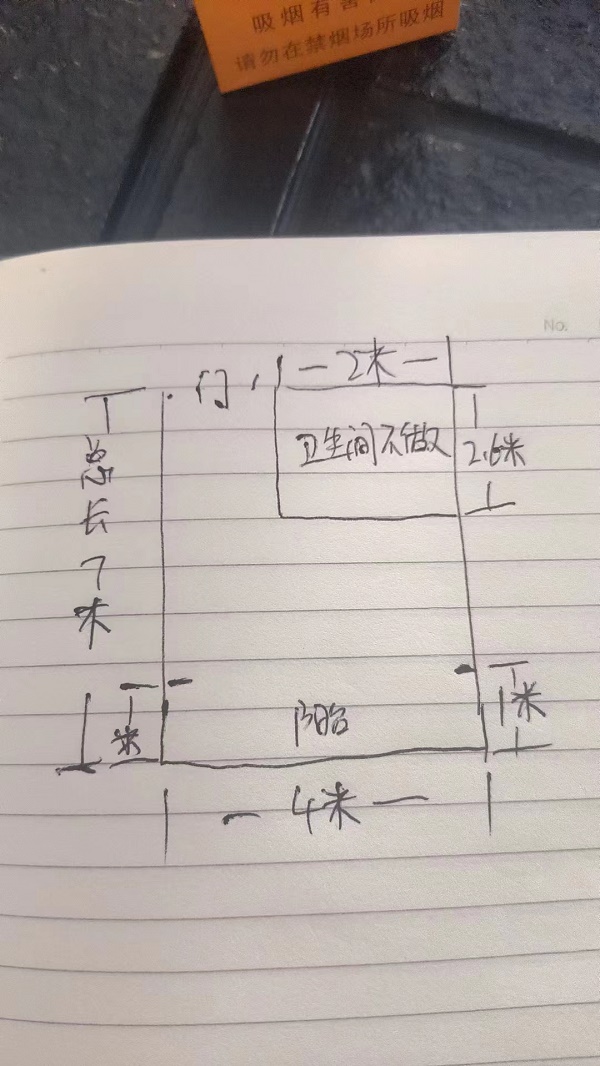 吸烟有害
请勿在禁烟场所吸烟
No.
2米
门
卫生间不做
2.6米
总长7米
1米
阳台
1米
4米